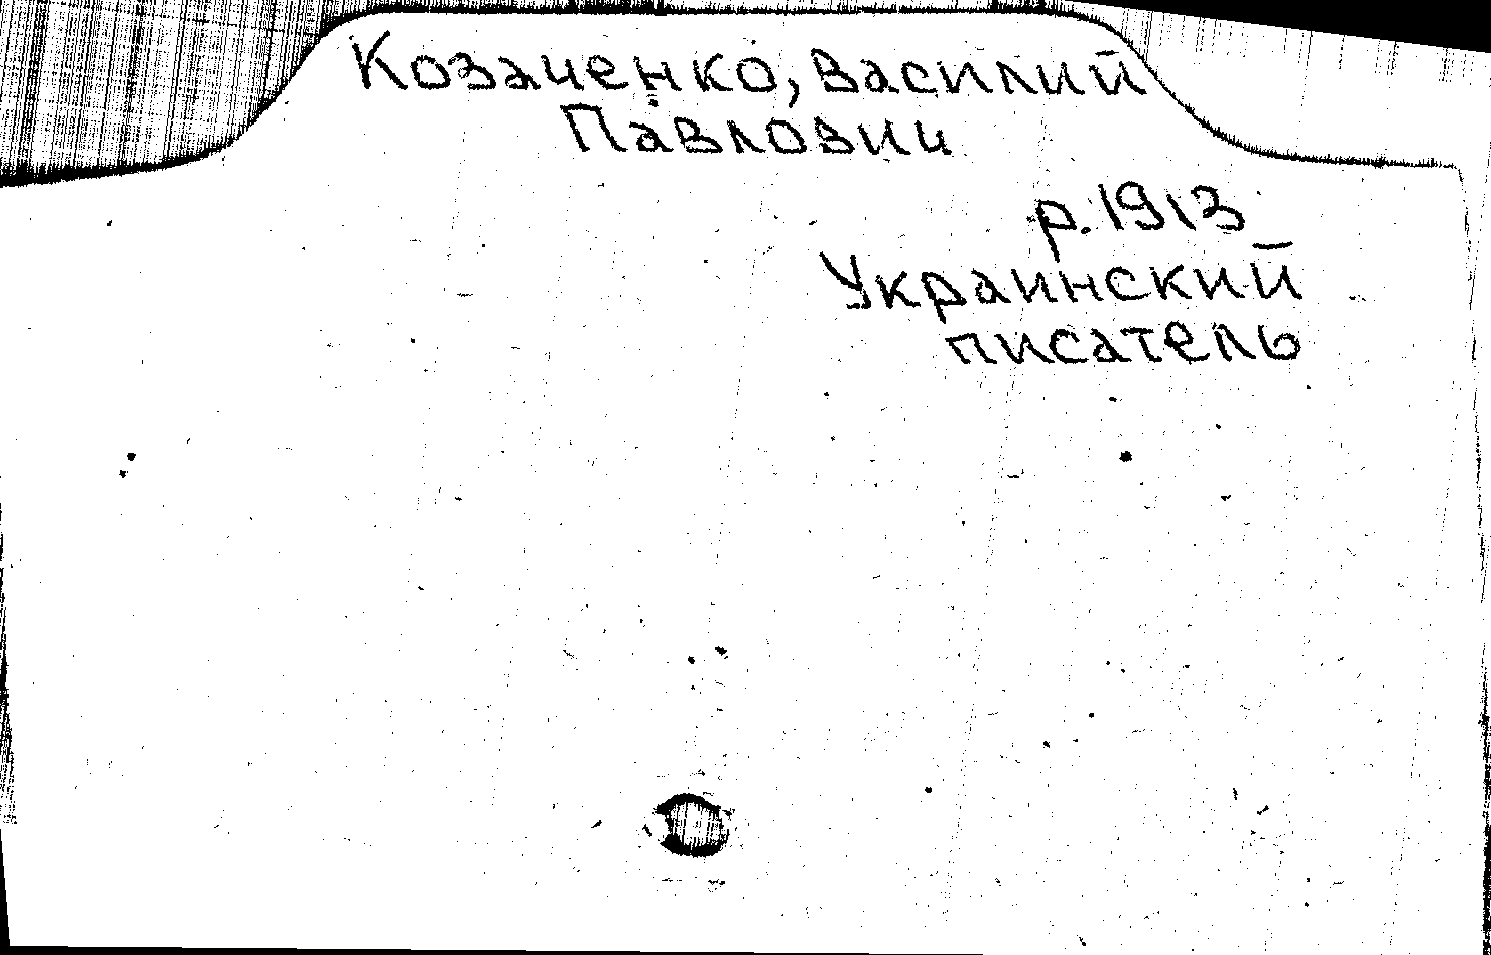 Козаченко, Василий
Павлович
р. 1913
Украинский
писатель